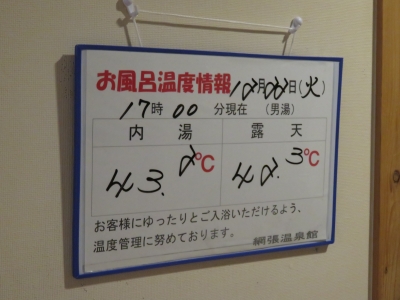 お風呂温度情報 12月22日(火)
17時00分現在 (男湯)
内湯 露天
43.2℃ 42.3℃
お客様にゆったりとご入浴いただけるよう、
温度管理に努めております。 網張温泉館